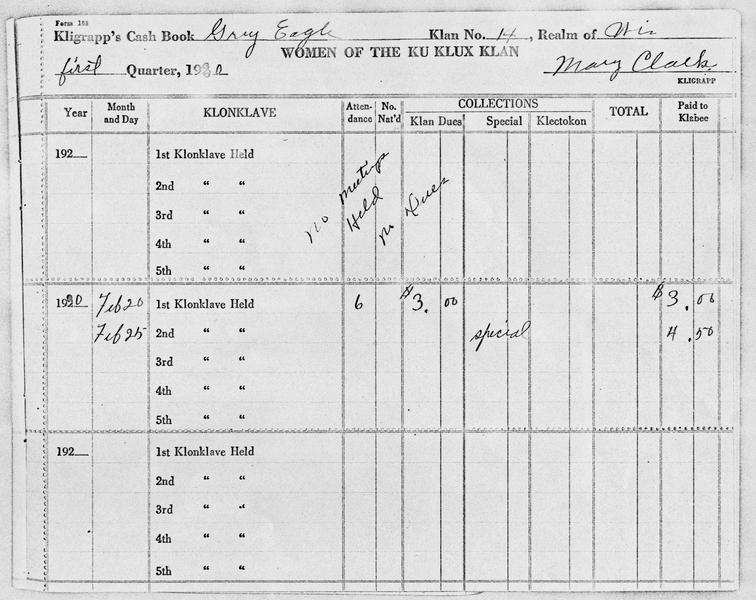 Form 168
Kligrapp's Cash Book Grey Eagle Klan No. 14, Realm of Wis
WOMEN OF THE KU KLUX KLAN
first Quarter, 1930 Mary Clark
KLIGRAPP
Year Month and Day KLONKLAVE Attendance No. Nat'd COLLECTIONS TOTAL Paid to Klabee
Klan Dues Special Klectokon
192 1st Klonklave Held
2nd “ “
3rd “ “
4th “ “
5th “ “
No Meetings
Held
No Dues
1930 Feb 20 1st Klonklave Held 6 $3.00 $3.00
Feb 25 2nd “ “ special 4.50
3rd “ “
4th “ “
5th “ “
192 1st Klonklave Held
2nd “ “
3rd “ “
4th “ “
5th “ “